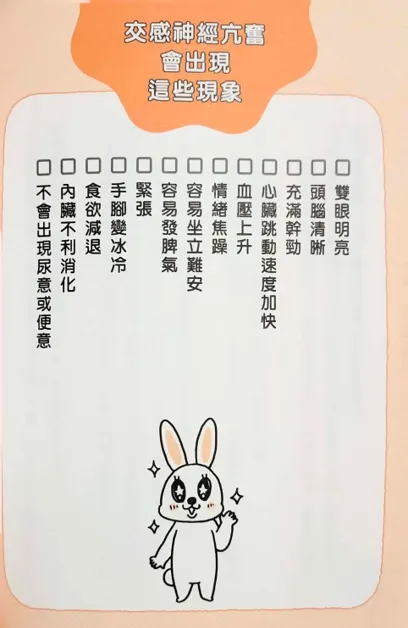 交感神經亢奮
會出現
這些現象
□雙眼明亮
□頭腦清晰
□充滿幹勁
□心臟跳動速度加快
□血壓上升
□情緒焦躁
□容易坐立難安
□容易發脾氣
□緊張
□手腳變冰冷
□食欲減退
□內臟不利消化
□不會出現尿意或便意